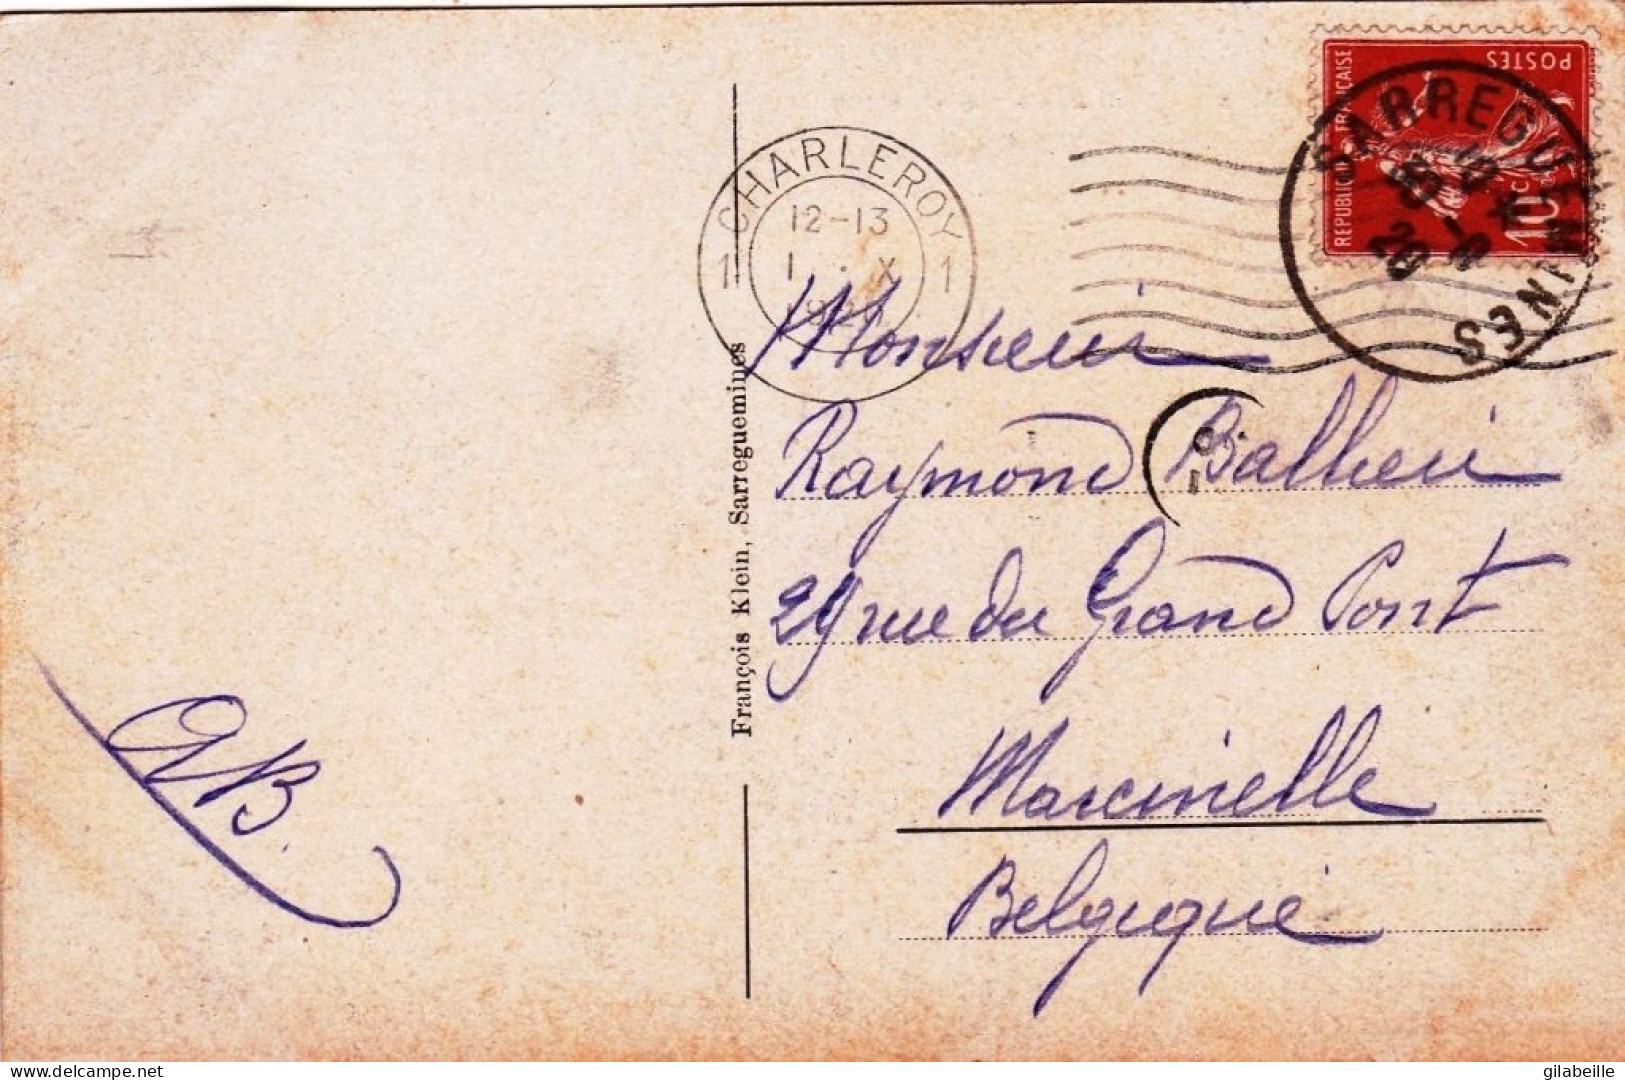 REPUBLIQUE FRANÇAISE
POSTES
10c
SARREGUEMINES
20
CHARLEROY
12-13
1 1
I . X
Monsieur
Raymond Ballieu
29 rue du Grand Pont
Marcinelle
Belgique
AB.
François Klein, Sarreguemines
delcampe.net
gilabeille